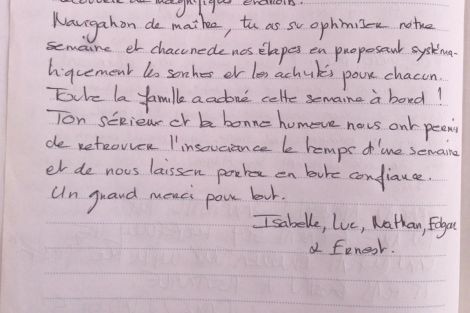 découverte de magnifique endroits.
Navigation de maître, tu as su optimiser notre
semaine et chacune de nos étapes en proposant systéma-
tiquement les sorties et les activités pour chacun.
Toute la famille a adoré cette semaine à bord !
Ton sérieux et ta bonne humeur nous ont permis
de retrouver l'insouciance le temps d'une semaine
et de nous laisser porter en toute confiance.
Un grand merci pour tout.
Isabelle, Luc, Nathan, Edgar
& Ernest.